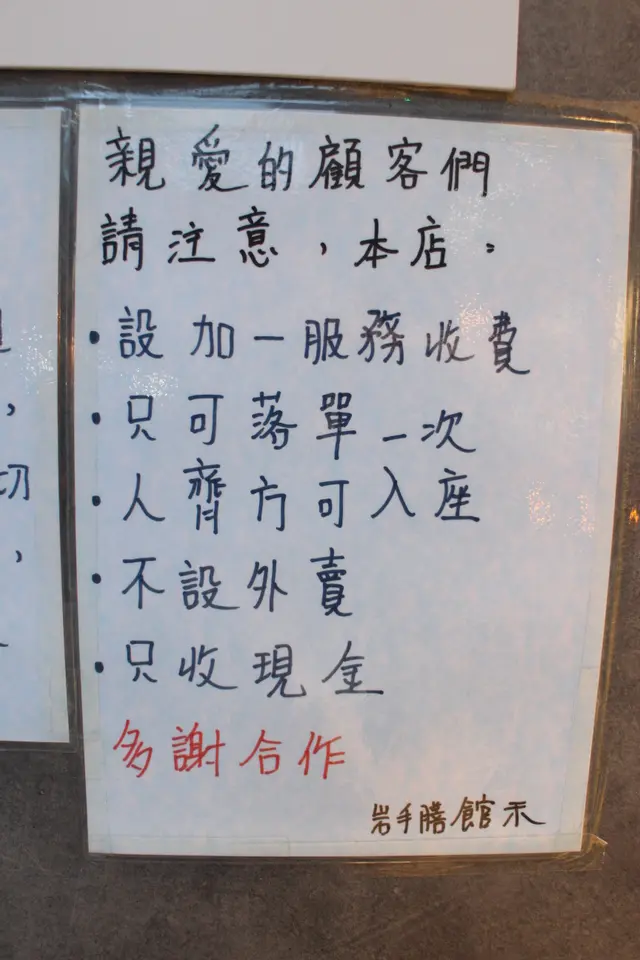 親愛的顧客們
請注意，本店。
・設加一服務收費
・只可落單一次
・人齊方可入座
・不設外賣
・只收現金
多謝合作
岩手膳館示
，
切
，